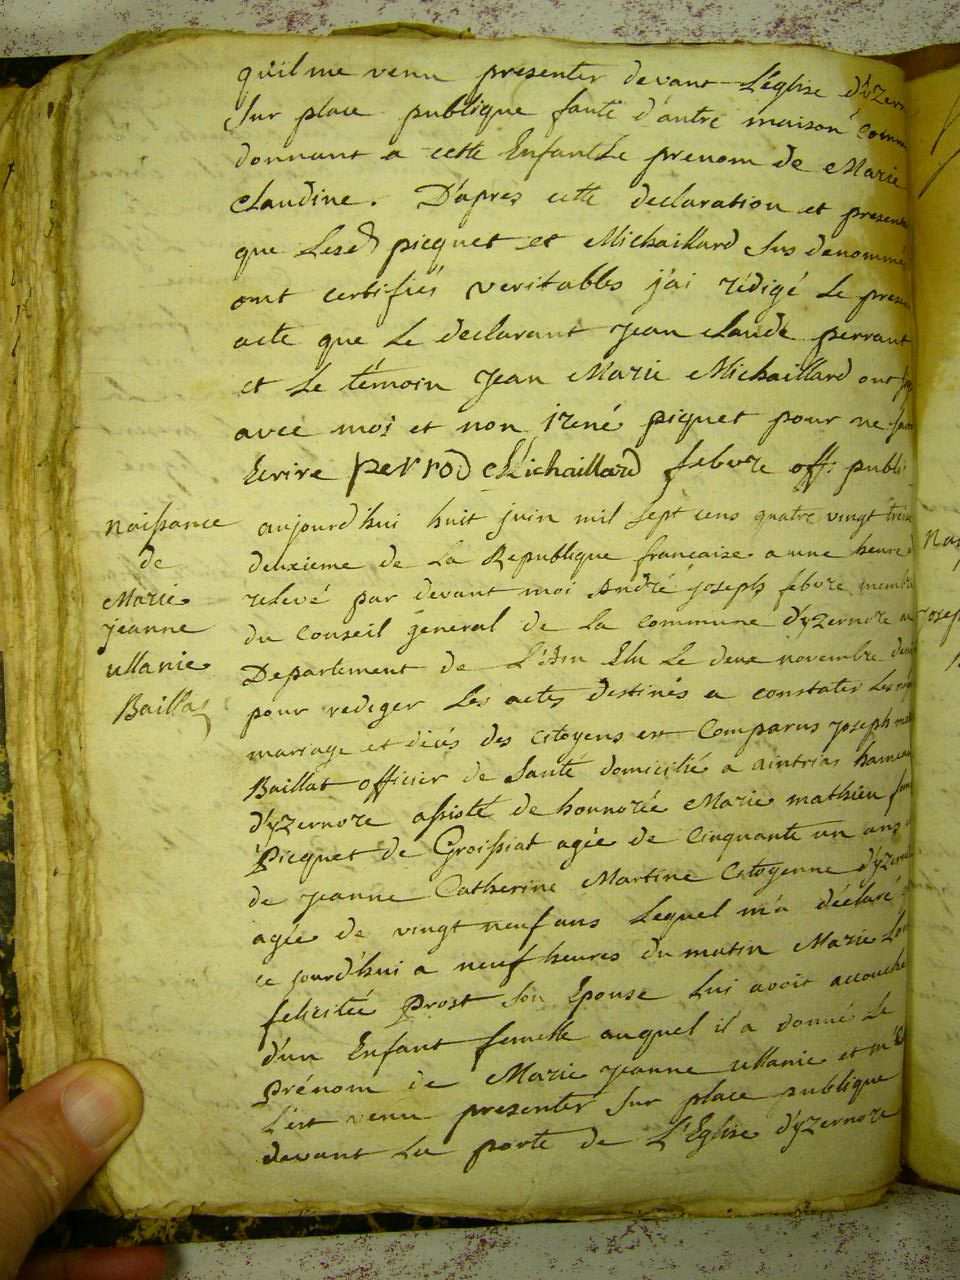 qu'il me venu presenter devant L'église d'yzern
Sur place publique faute d'autre maison comm
donnant a cette Enfant Le prenom de Marie
Claudine. D'apres cette declaration et presen
que Lesd picquet et Michaillard Sus denommé
ont certifiés veritables j'ai rédigé Le presen
acte que Le declarant jean claude perraut
et Le témoin jean Marie Michaillard ont
avec moi et non irené piquet pour ne
Ecrire perrod Michaillard febvre off. publi
Naissance
de
Marie
jeanne
ullanie
Baillat
aujourd'hui huit juin mil sept cens quatre vingt treize
deuxieme de La Republique francaise a une heure d
relevé par devant moi André joseph febvre membre
du Conseil general de La commune d'yzernore au
Departement de L'Ain Elu Le deux novembre
pour rediger Les actes destinés a constater Les
mariage et décés des citoyens est Comparus joseph
Baillat officier de Santé domicilié a aintrias hameau
d'yzernore assisté de honnorée Marie mathieu
Picquet de Groissiat agée de Cinquante un ans
de jeanne Catherine Martine Citoyenne d'yzer
agée de vingt neuf ans Lequel m'a déclaré
ce jourd'hui a neuf heures du matin Marie
felicitée Prost Son Epouse Lui avoit accouché
d'un Enfant femelle auquel il a donné Le
prénom de Marie jeanne ullanie et m'
L'est venu presenter Sur place publique
devant La porte de L'Eglise d'yzernore